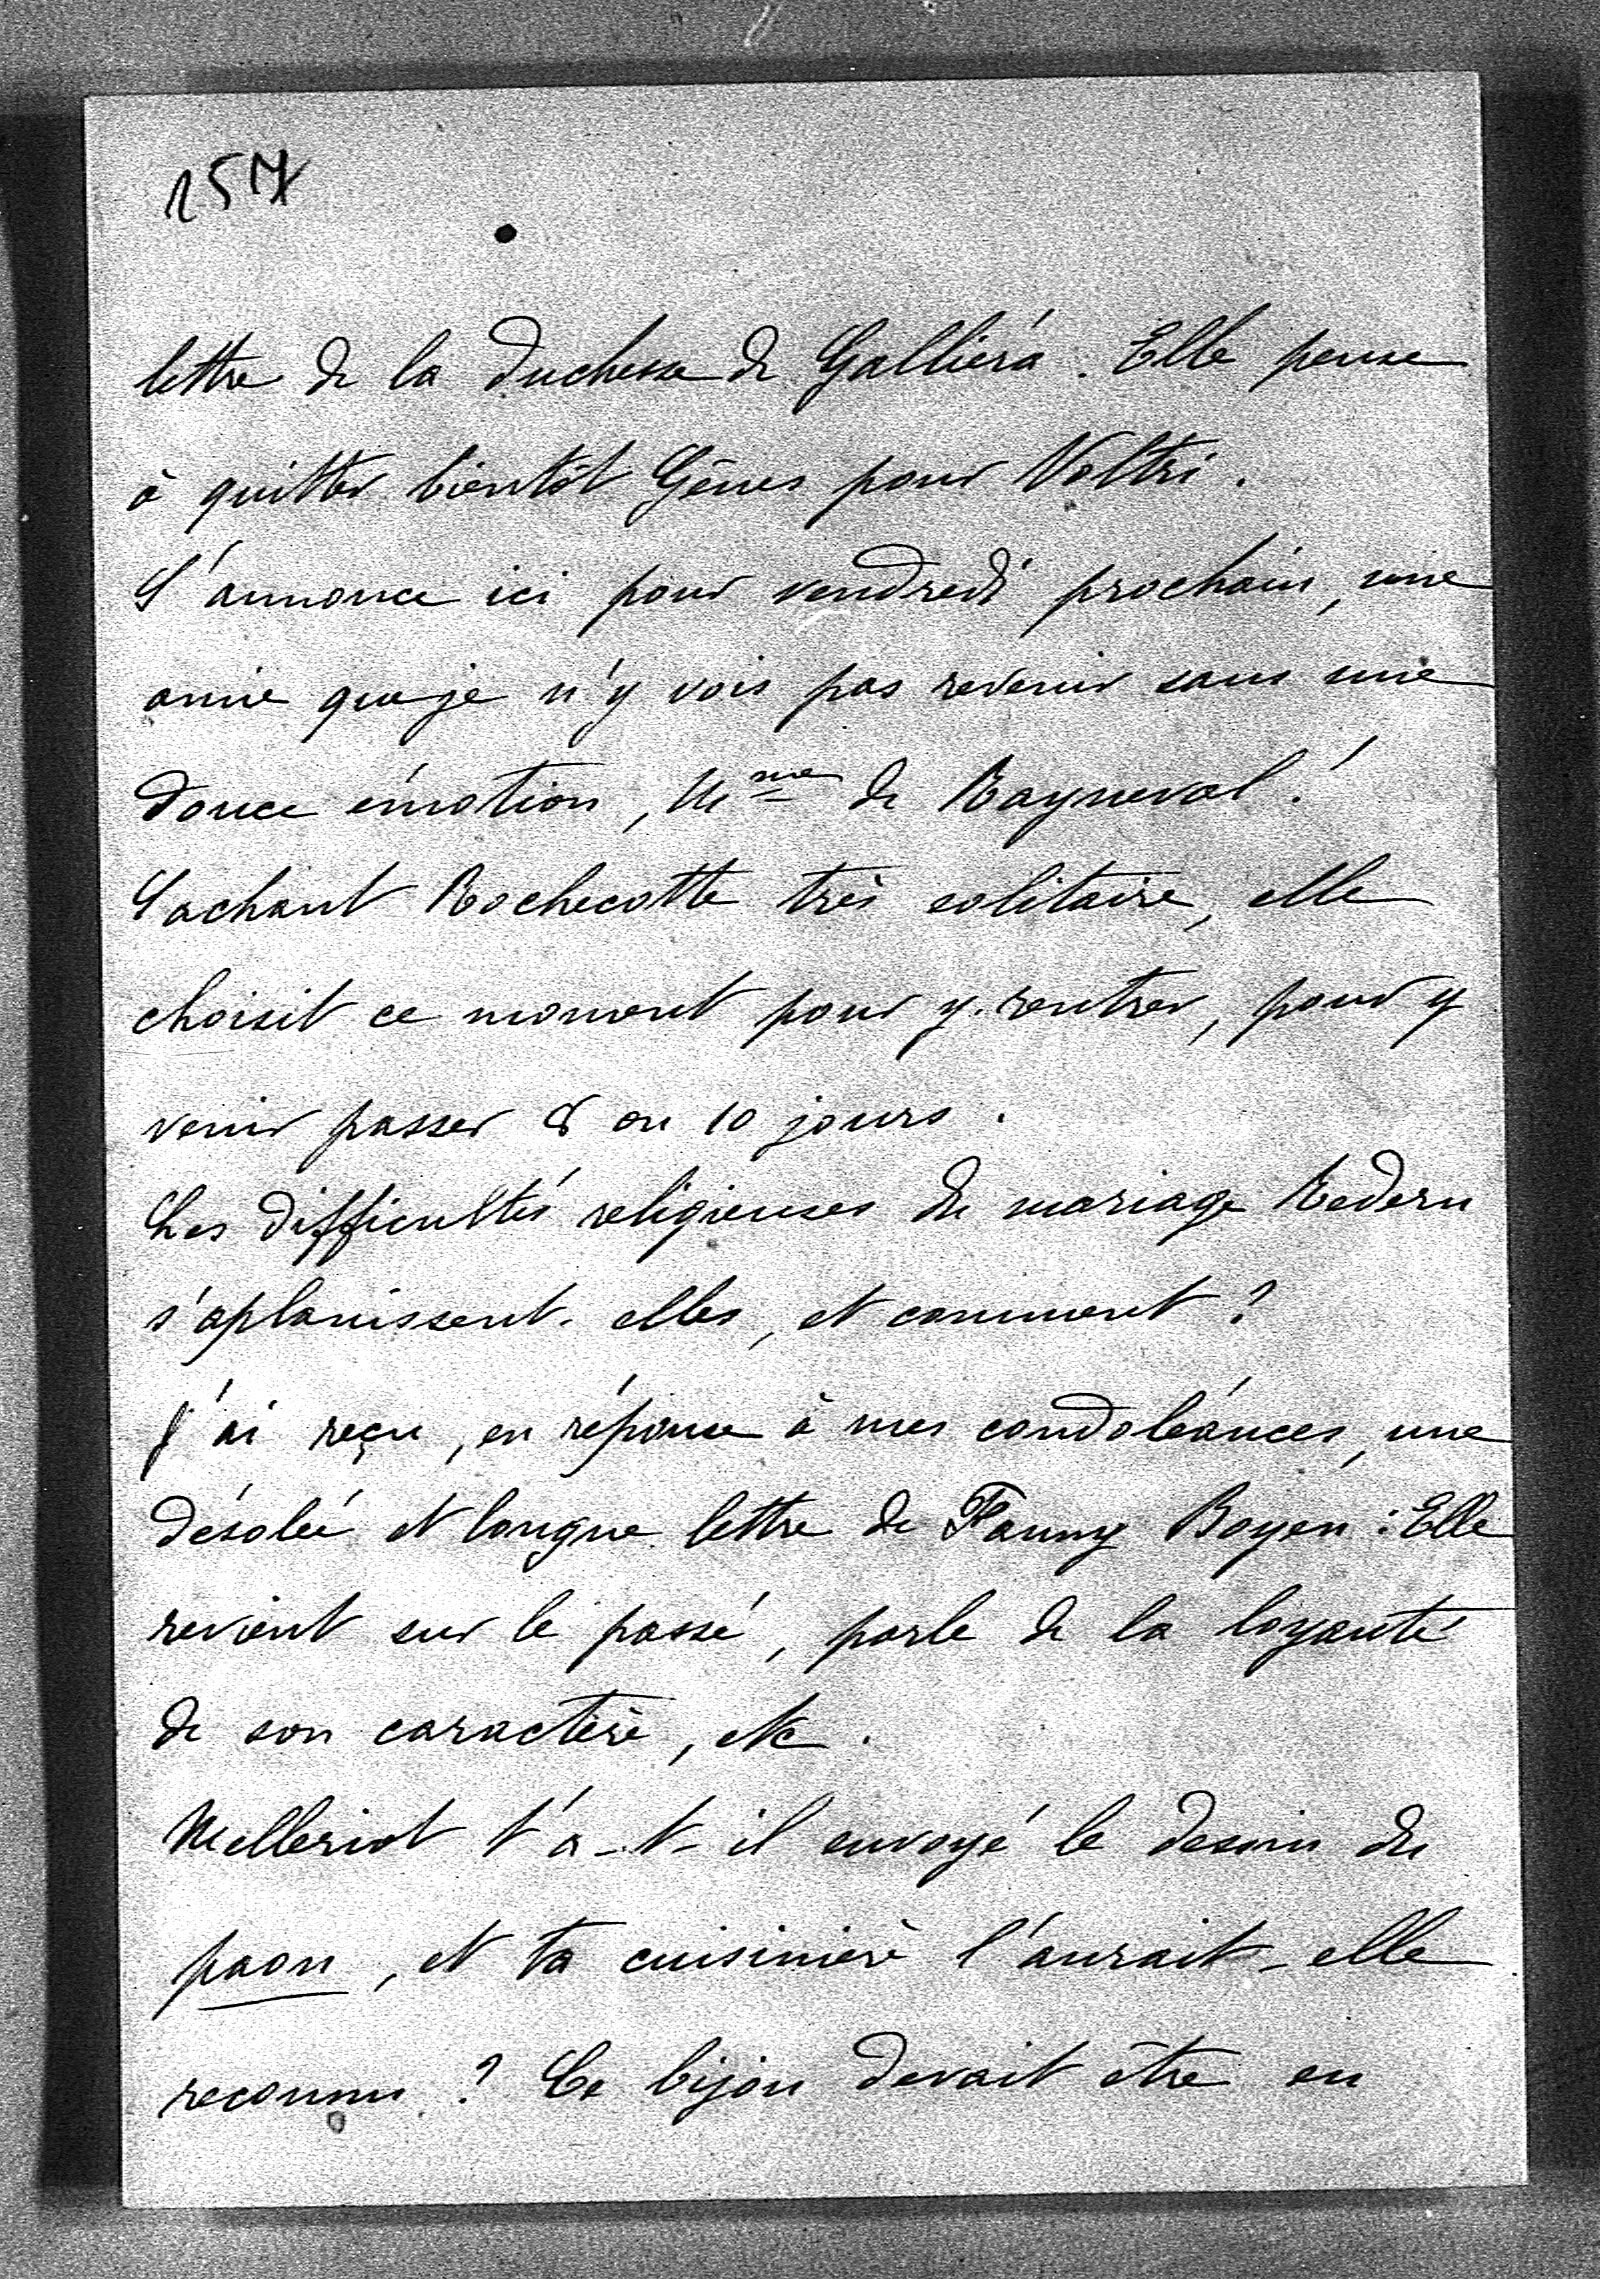 257
lettre de la duchesse de Galliéra. Elle pense
à quitter bientôt Gênes pour Voltri.
S'annonce ici pour vendredi prochain, une
amie que je n'y vois pas revenir sans une
douce émotion, Mme de Rayneval!
Sachant Rochecotte très solitaire, elle
choisit ce moment pour y rentrer, pour y
venir passer 8 ou 10 jours.
Les difficultés religieuses du mariage Redern
s'aplanissent-elles, et comment?
J'ai reçu, en réponse à mes condoléances, une
désolée et longue lettre de Fanny Boyen: Elle
revient sur le passé, parle de la loyauté
de son caractère, etc.
Melleriot t'a-t-il envoyé le dessin du
paon, et ta cuisinière l'aurait-elle
reconnu? Ce bijou devait être en